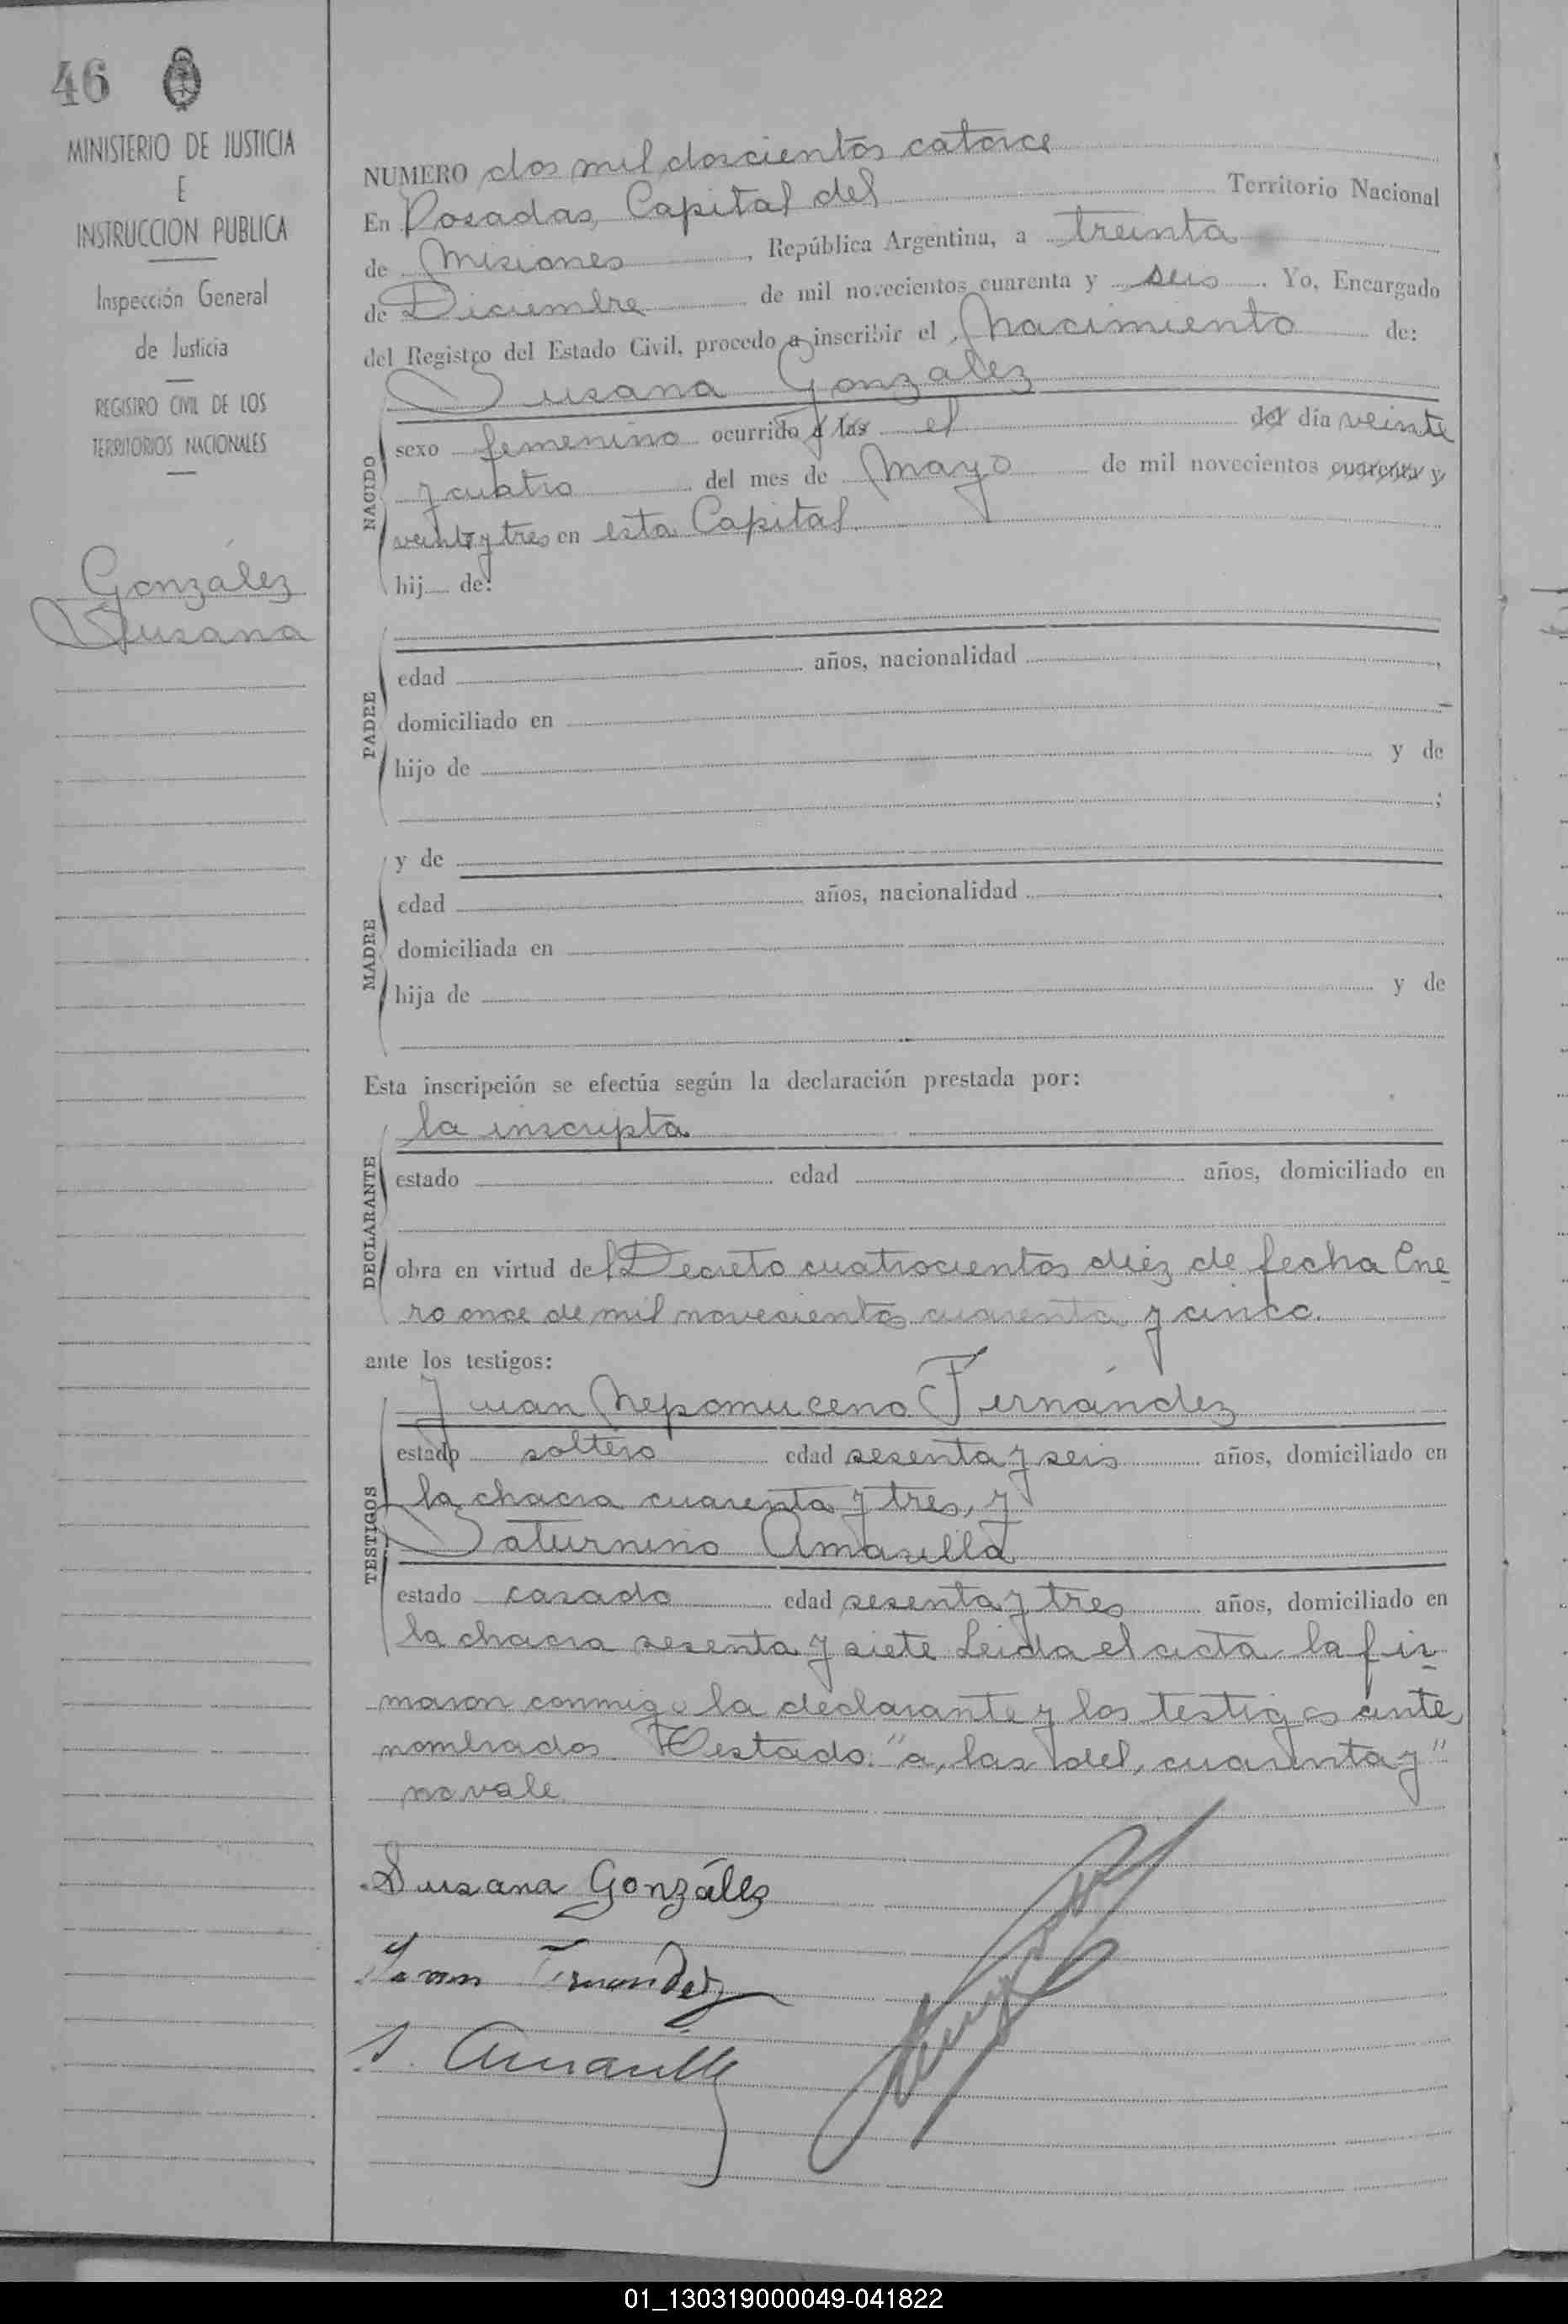 46
MINISTERIO DE JUSTICIA
E
INSTRUCCION PUBLICA
Inspección General
de Justicia
REGISTRO CIVIL DE LOS
TERRITORIOS NACIONALES
González
Susana
NUMERO dos mil doscientos catorce
En Posadas, Capital del Territorio Nacional
de Misiones, República Argentina, a treinta
de Diciembre de mil novecientos cuarenta y seis. Yo, Encargado
del Registro del Estado Civil, procedo a inscribir el Nacimiento de:
Susana Gonzalez
NACIDO
sexo femenino ocurrido a las el del día veinte
y cuatro del mes de Mayo de mil novecientos cuarenta y
veinte y tres en esta Capital
hij de:
PADRE
edad años, nacionalidad ,
domiciliado en
hijo de y de
;
MADRE
y de
edad años, nacionalidad ,
domiciliada en
hija de y de
Esta inscripción se efectúa según la declaración prestada por:
DECLARANTE
la inscripta
estado edad años, domiciliado en
obra en virtud del Decreto cuatrocientos diez de fecha Ene
ro once de mil novecientos cuarenta y cinco.
ante los testigos:
TESTIGOS
Juan Nepomuceno Fernández
estado soltero edad sesenta y seis años, domiciliado en
la chacra cuarenta y tres, y
Saturnino Amarilla
estado casado edad sesenta y tres años, domiciliado en
la chacra sesenta y siete Leida el acta la fir
maron conmigo la declarante y los testigos ante
nombrados. Testado: "a, las del, cuarenta y"
no vale.
Susana González
Juan Fernandez
S. Amarilla
01_130319000049-041822